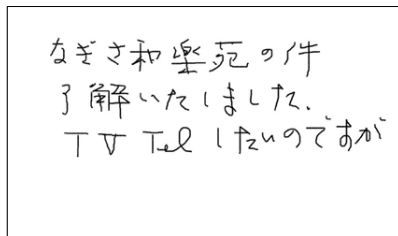 なぎさ和楽苑の件
了解いたしました.
TV Tel したいのですが